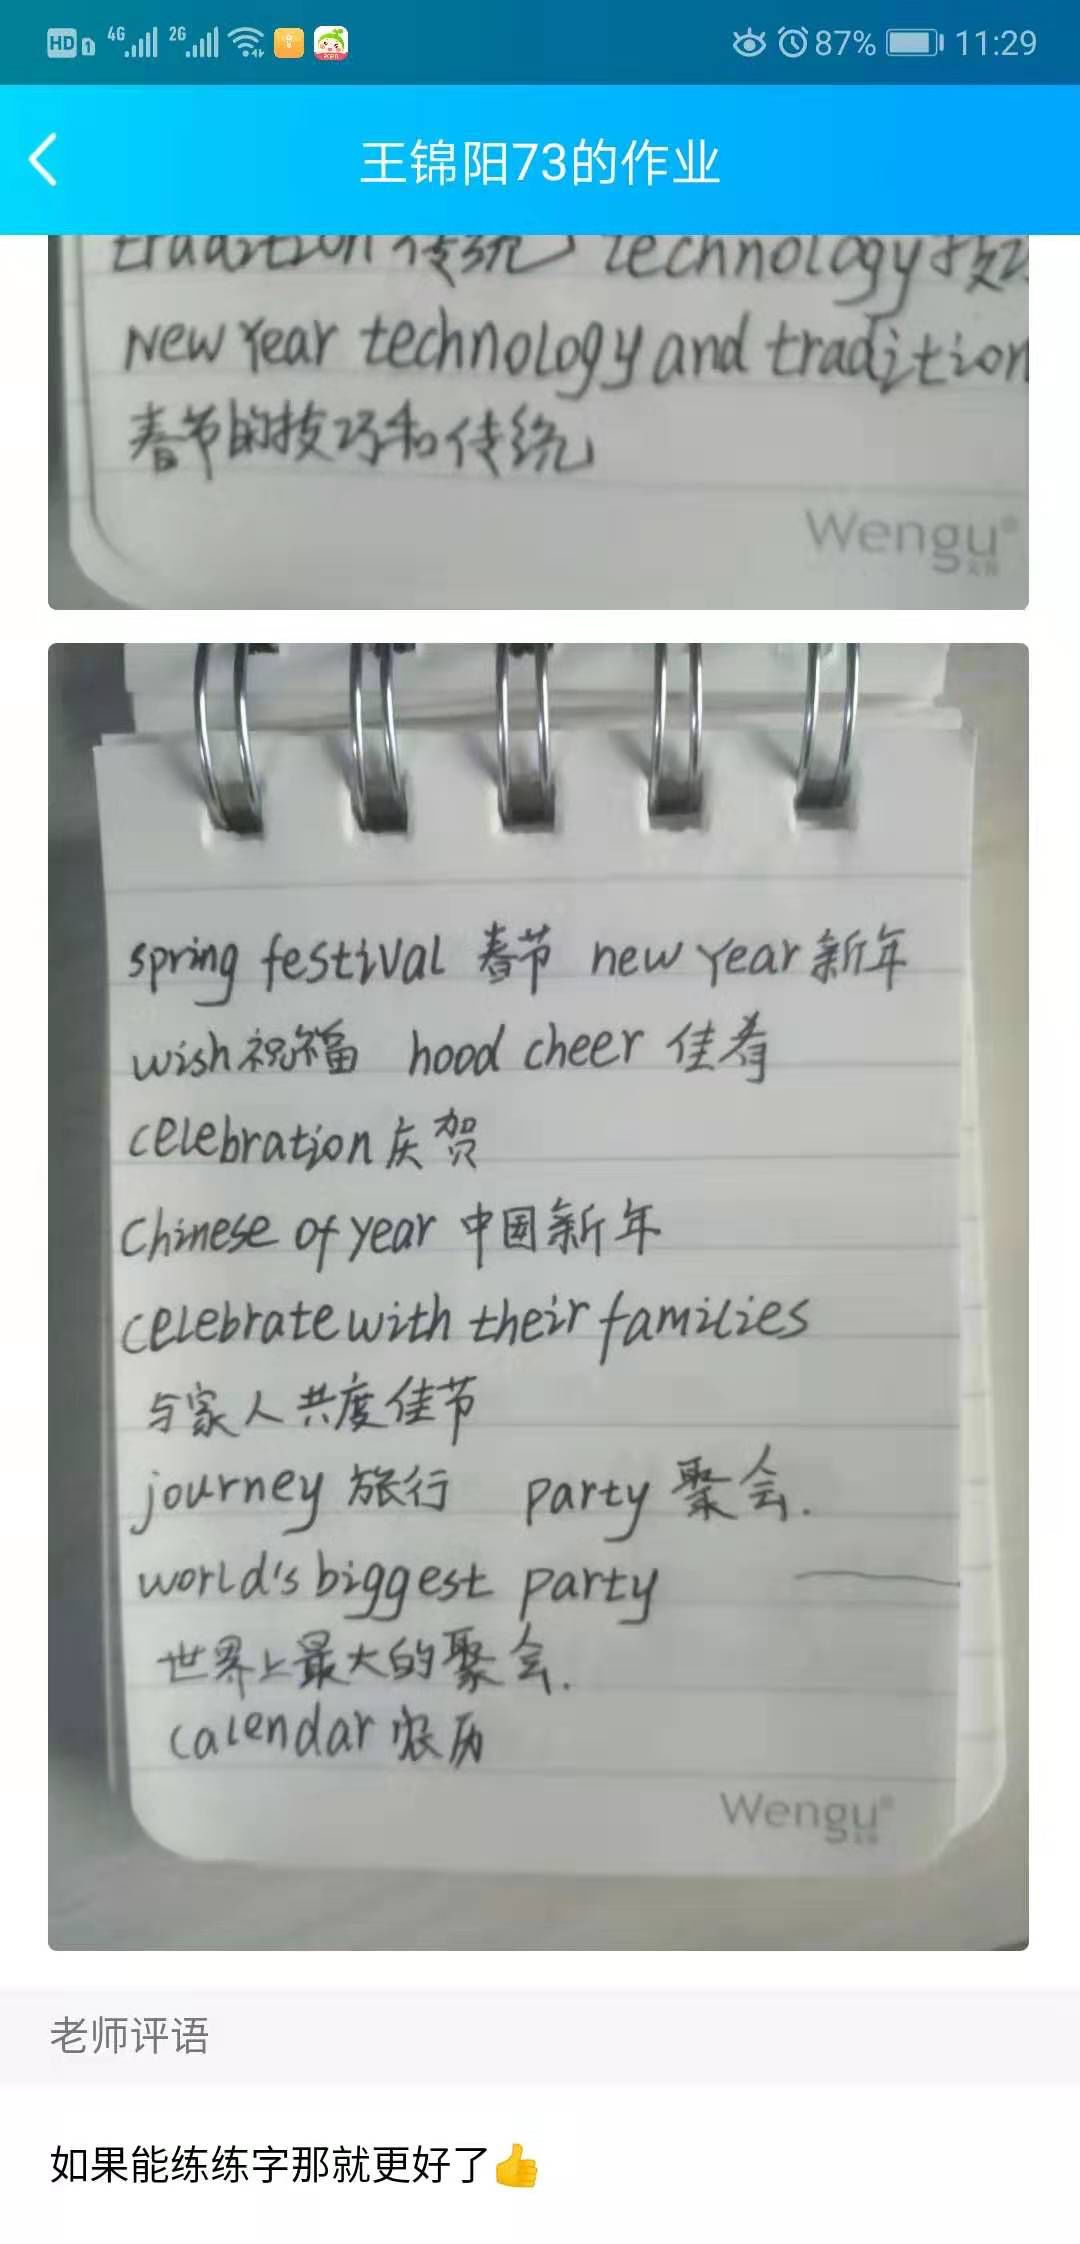 HD 1 4G 2G 87% 11:29
王锦阳73的作业
tradition 传统 technology 技巧
New Year technology and tradition
春节的技巧和传统
Wengu
spring festival 春节 new year 新年
wish 祝福 hood cheer 佳肴
celebration 庆贺
Chinese of year 中国新年
celebrate with their families
与家人共度佳节
journey 旅行 party 聚会.
world's biggest party
世界上最大的聚会.
calendar 农历
Wengu
老师评语
如果能练练字那就更好了👍